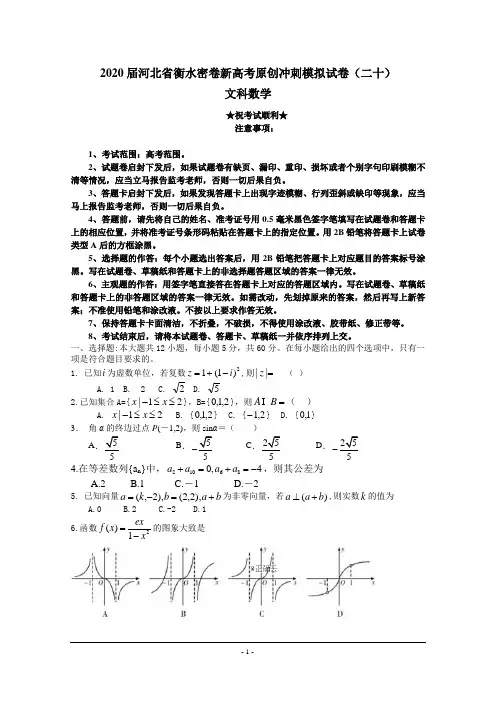 2020届河北省衡水密卷新高考原创冲刺模拟试卷（二十）
文科数学
★祝考试顺利★
注意事项：
1、考试范围：高考范围。
2、试题卷启封下发后，如果试题卷有缺页、漏印、重印、损坏或者个别字句印刷模糊不
清等情况，应当立马报告监考老师，否则一切后果自负。
3、答题卡启封下发后，如果发现答题卡上出现字迹模糊、行列歪斜或缺印等现象，应当
马上报告监考老师，否则一切后果自负。
4、答题前，请先将自己的姓名、准考证号用0.5毫米黑色签字笔填写在试题卷和答题卡
上的相应位置，并将准考证号条形码粘贴在答题卡上的指定位置。用2B铅笔将答题卡上试卷
类型A后的方框涂黑。
5、选择题的作答：每个小题选出答案后，用2B铅笔把答题卡上对应题目的答案标号涂
黑。写在试题卷、草稿纸和答题卡上的非选择题答题区域的答案一律无效。
6、主观题的作答：用签字笔直接答在答题卡上对应的答题区域内。写在试题卷、草稿纸
和答题卡上的非答题区域的答案一律无效。如需改动，先划掉原来的答案，然后再写上新答
案；不准使用铅笔和涂改液。不按以上要求作答无效。
7、保持答题卡卡面清洁，不折叠，不破损，不得使用涂改液、胶带纸、修正带等。
8、考试结束后，请将本试题卷、答题卡、草稿纸一并依序排列上交。
一、选择题:本大题共12小题，每小题5分，共60分。在每小题给出的四个选项中，只有一
项是符合题目要求的。
1. 已知i为虚数单位，若复数z=1+(1-i)²,则|z|= （ ）
A. 1 B. 2 C. √2 D. √5
2.已知集合A={x|-1≤x≤2}，B={0,1,2}，则A I B=（ ）
A. x|-1≤x≤2 B. {0,1,2} C. {-1,2} D. {0,1}
3. 角α的终边过点P(－1,2)，则sinα＝（ ）
A．√5/5 B．-√5/5 C．2√5/5 D．-2√5/5
4.在等差数列{aₙ}中，a₂+a₁₀=0,a₆+a₈=-4，则其公差为
A.2 B.1 C.－1 D.－2
5. 已知向量a=(k,-2),b=(2,2),a+b为非零向量，若a⊥(a+b),则实数k的值为
A.0 B.2 C.-2 D.1
6.函数f(x)=ex/(1-x²)的图象大致是
y y y y
-1 O 1 x -1 O 1 x -1 O 1 x -1 O 1 x
A B C D
- 1 -